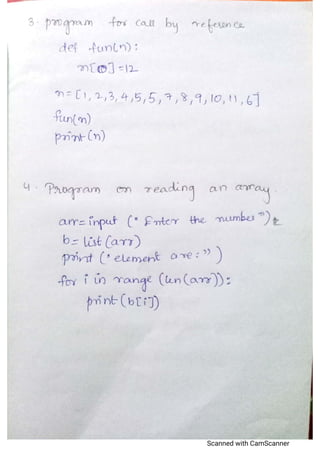 3. program for call by reference
def fun(n):
n[0]=12
n=[1,2,3,4,5,5,7,8,9,10,11,6]
fun(n)
print(n)
4. Program on reading an array.
arr=input ("Enter the number")
b=list(arr)
print ("element are:")
for i in range (len(arr)):
print(b[i])
Scanned with CamScanner